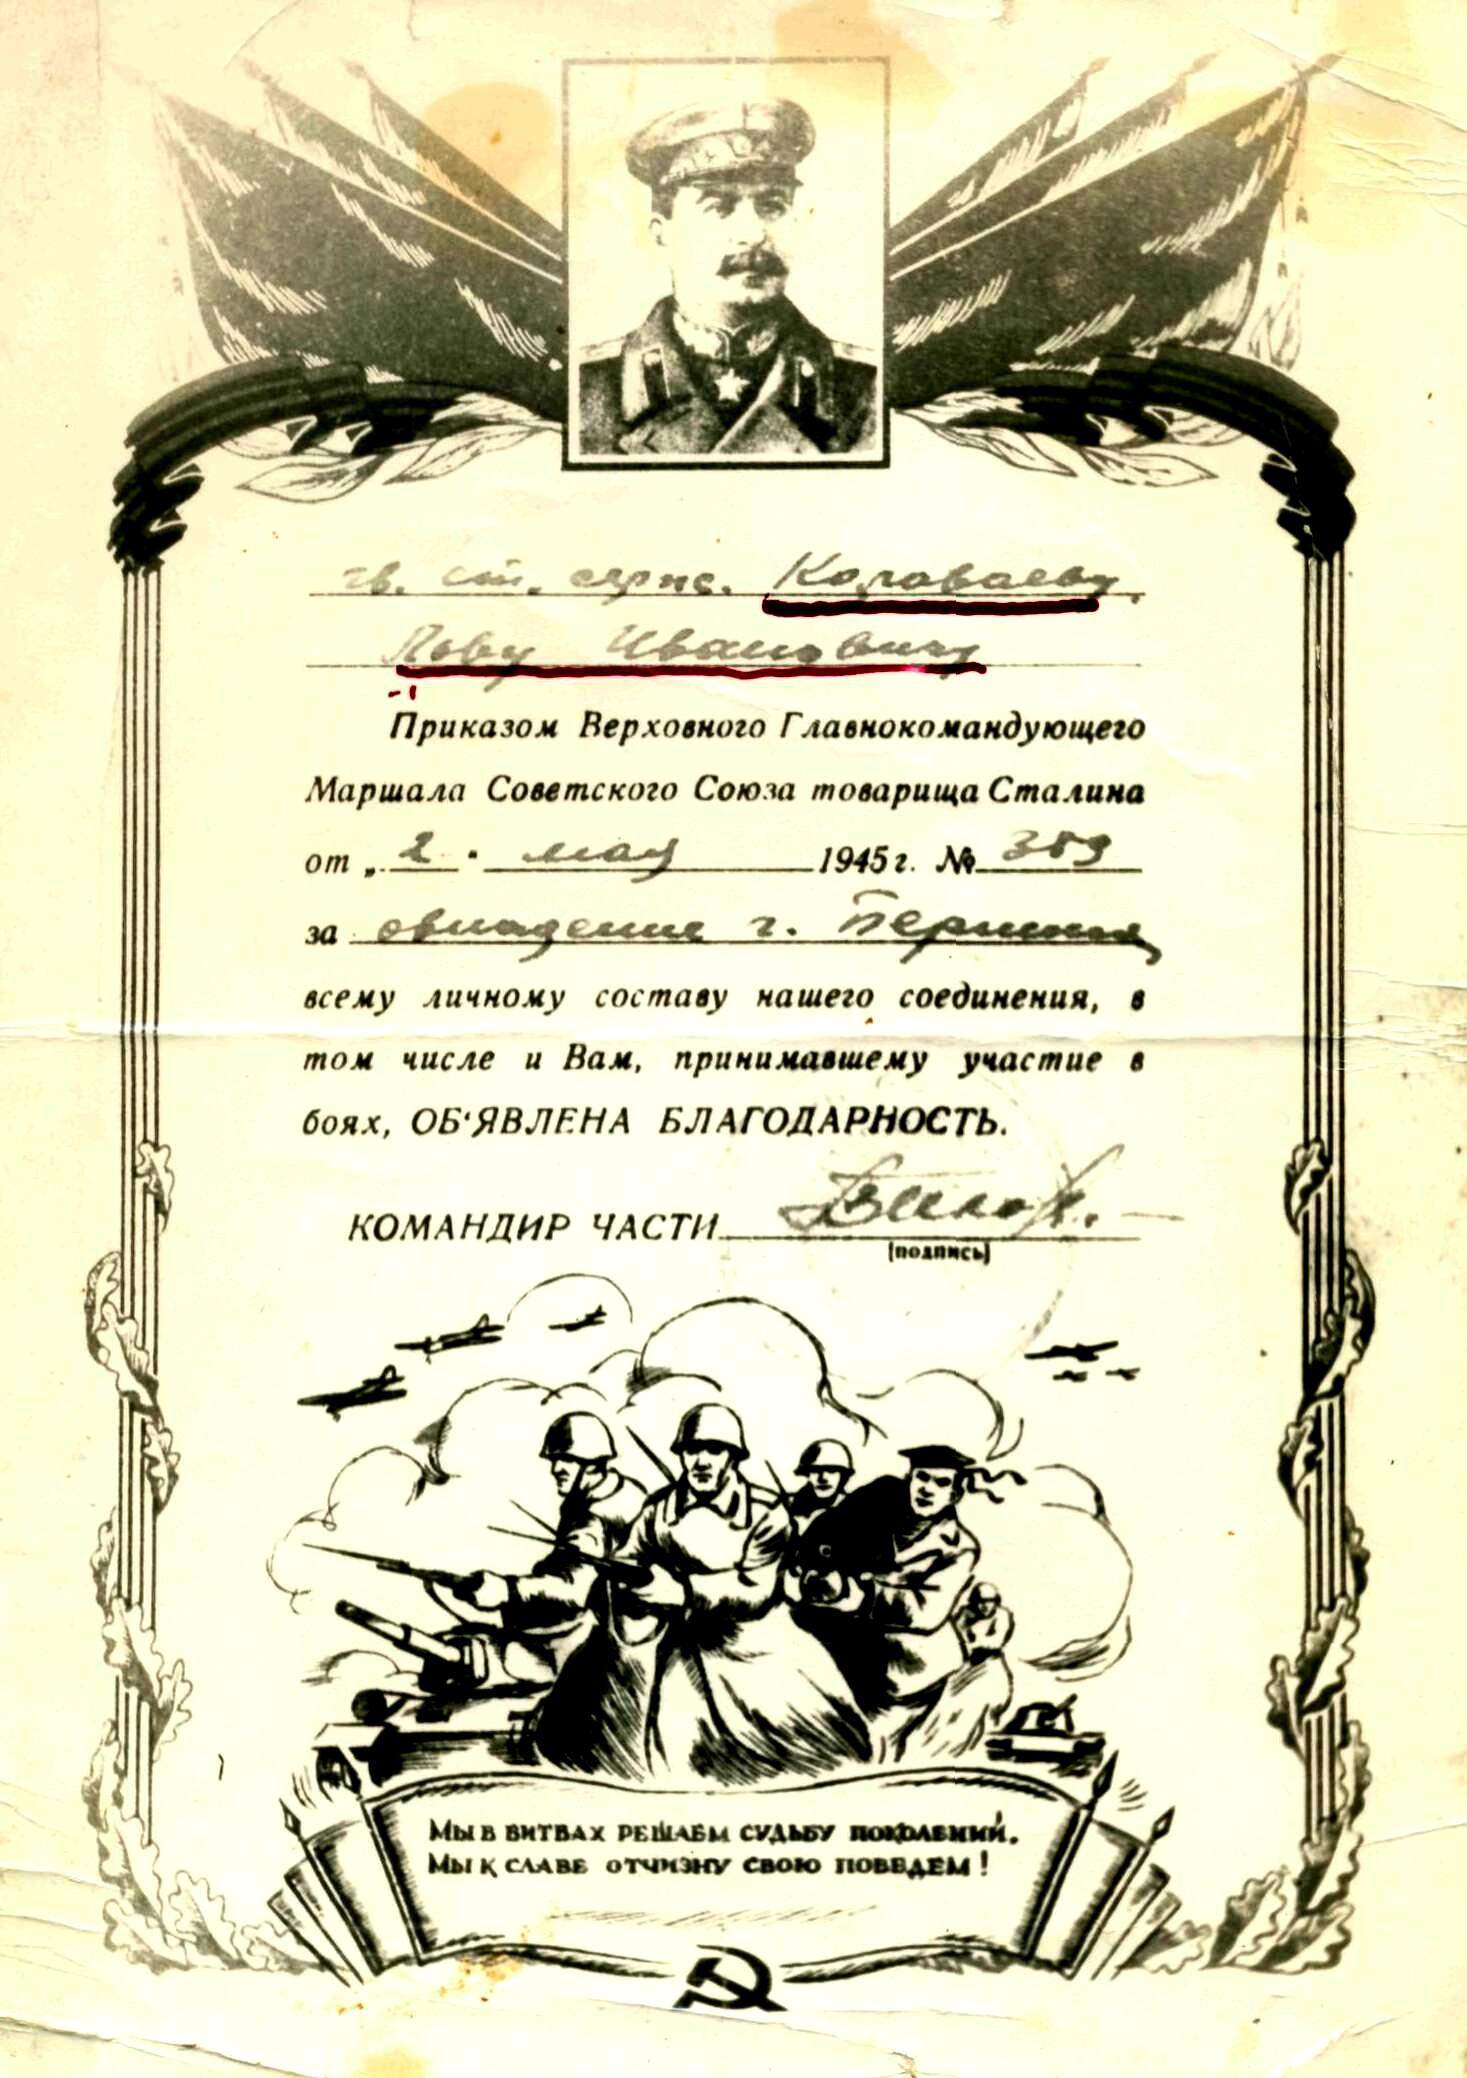 гв. ст. серж. Короваеву
Льву Ивановичу
Приказом Верховного Главнокомандующего
Маршала Советского Союза товарища Сталина
от „2" мая 1945 г. № 359
за овладение г. Берлина
всему личному составу нашего соединения, в
том числе и Вам, принимавшему участие в
боях, ОБ‘ЯВЛЕНА БЛАГОДАРНОСТЬ.
КОМАНДИР ЧАСТИ
(подпись)
МЫ В БИТВАХ РЕШАЕМ СУДЬБУ ПОКОЛЕНИЙ.
МЫ К СЛАВЕ ОТЧИЗНУ СВОЮ ПОВЕДЕМ!